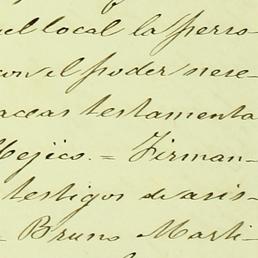 el local la perso-
con el poder nece-
aceas testamenta
Mejico. = Firman-
testigos de asis-
= Bruno Marti-